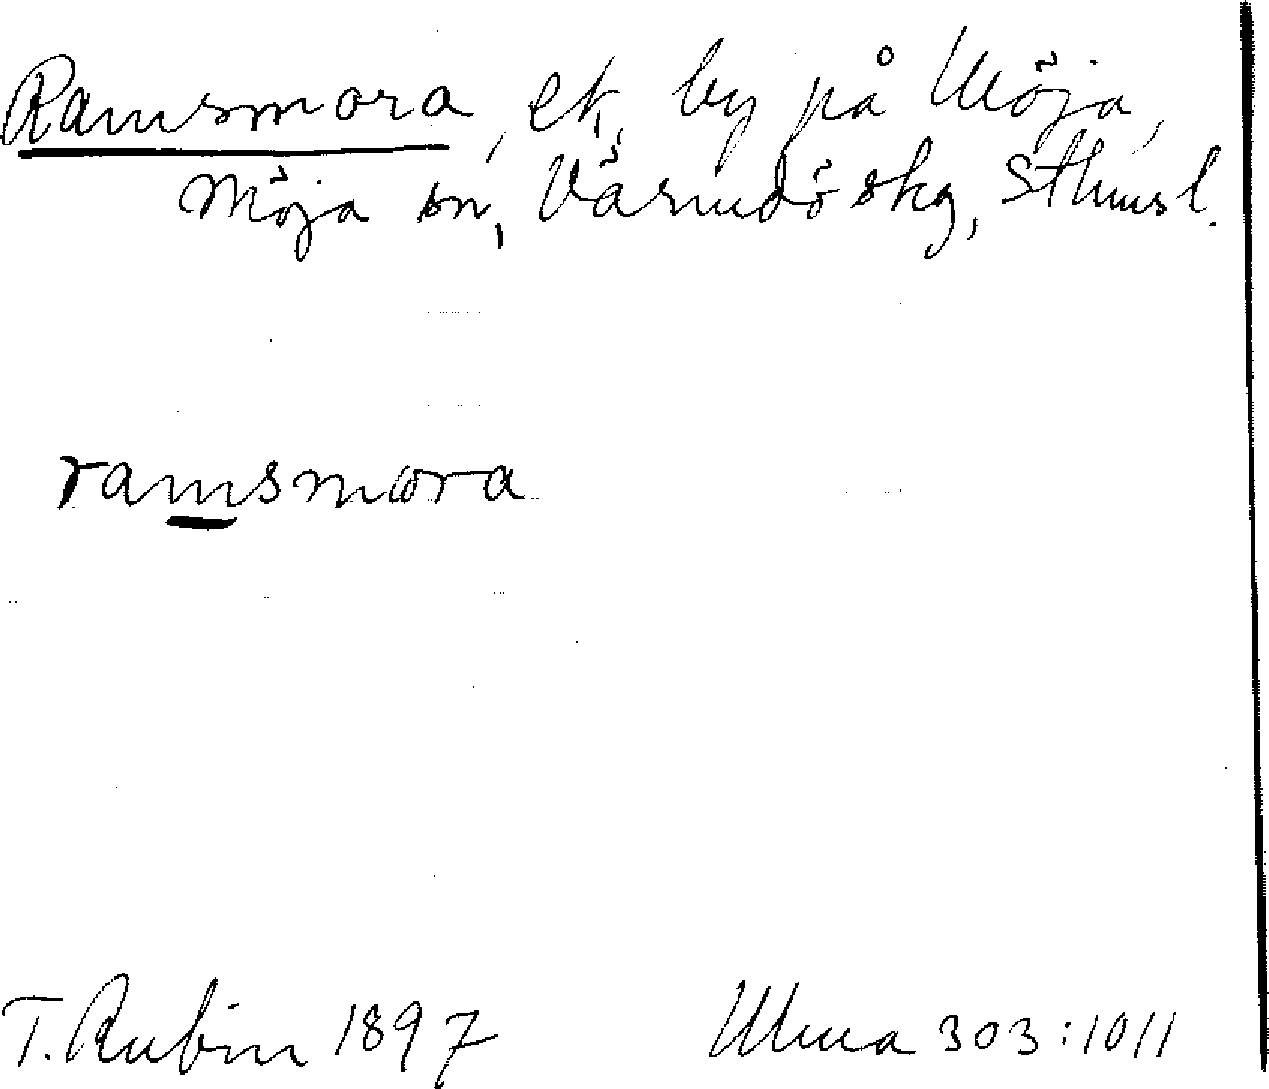 Ramsmora, ek, by på Möja,
Möja sn, Värmdö skg, Sthmsl.
ramsmora
T. Rubin 1897 Ulma 303:1011